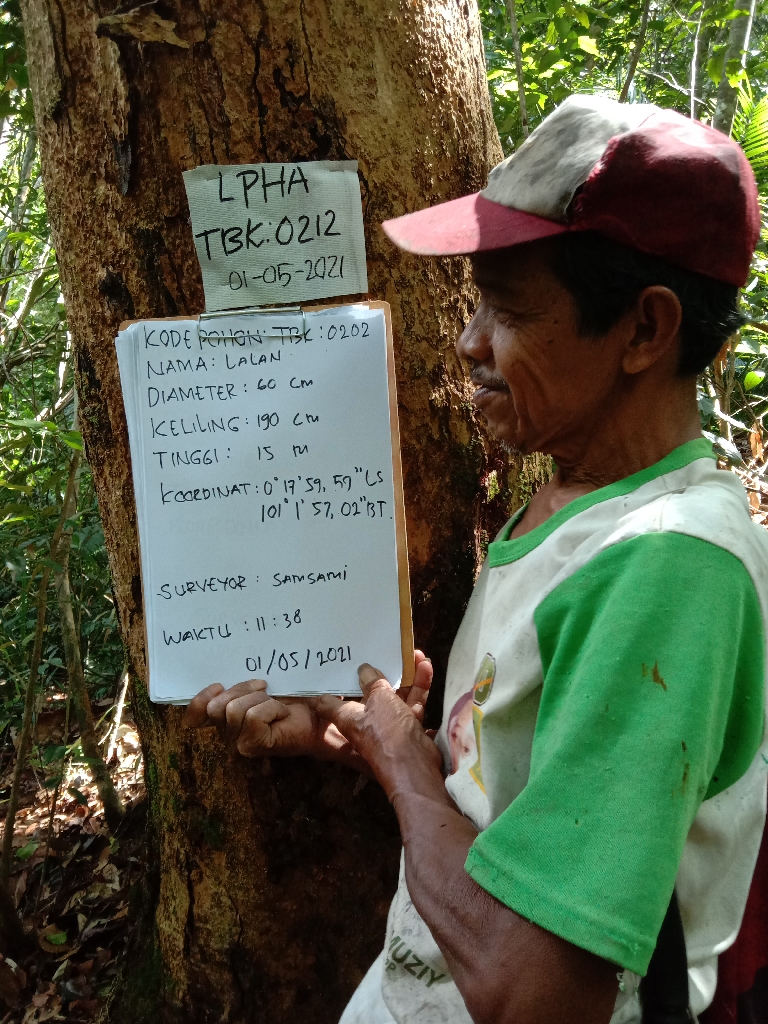 LPHA
TBK:0212
01-05-2021
KODE POHON: TBK:0202
NAMA: LALAN
DIAMETER: 60 cm
KELILING: 190 cm
TINGGI: 15 m
KOORDINAT: 0°17'59,59"LS
101°1'57,02"BT.
SURVEYOR: SAMSAMI
WAKTU: 11:38
01/05/2021